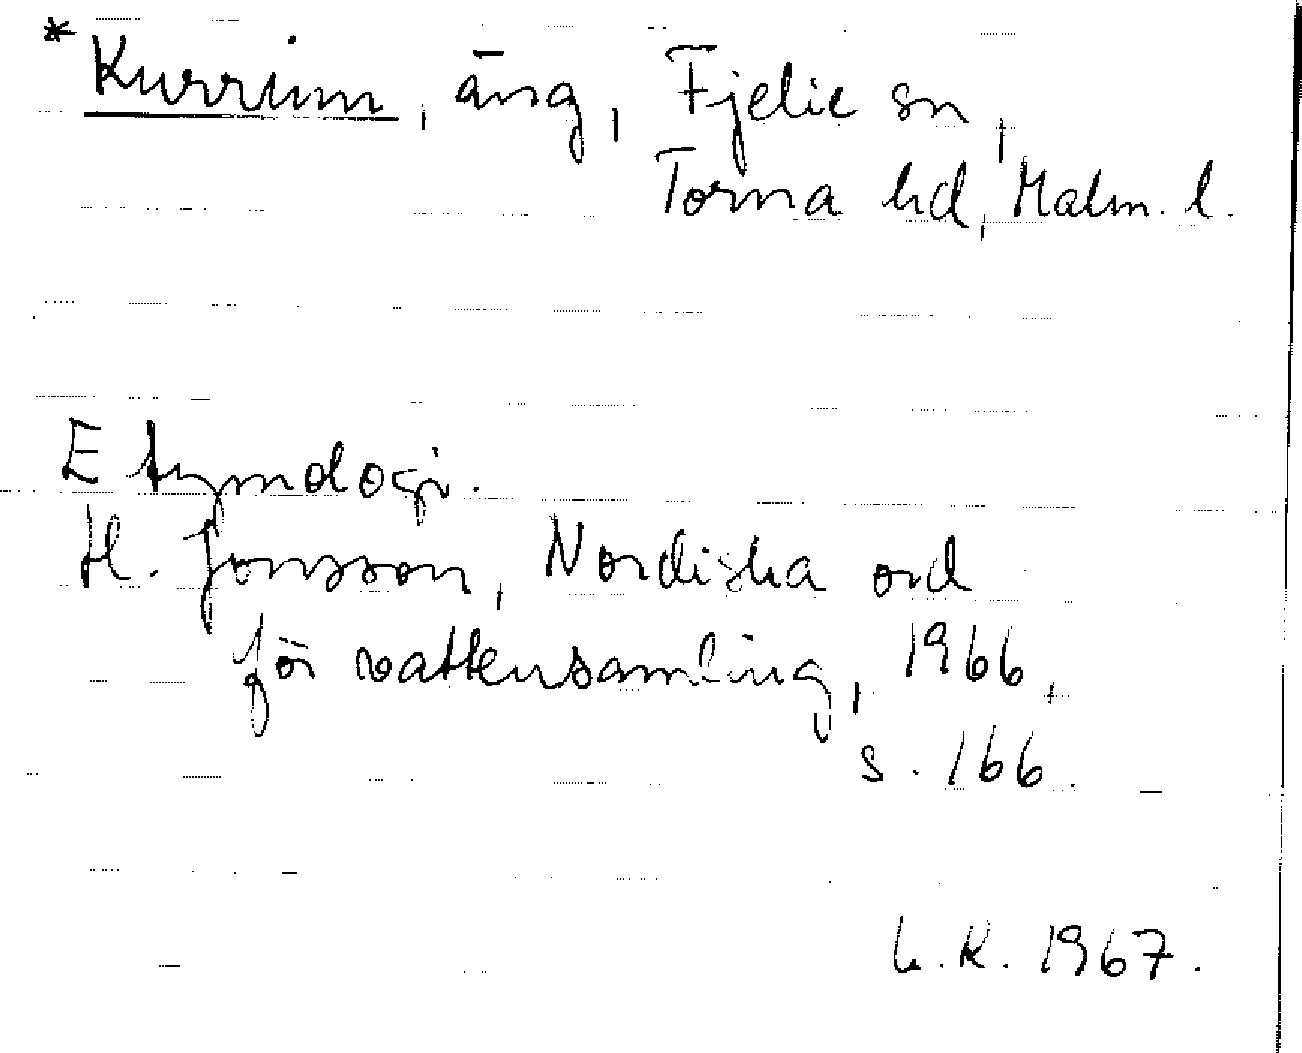 * Kurrim, äng, Fjelie sn,
Torna hd, Malm. l.
Etymologi.
H. Jonsson, Nordiska ord
för vattensamling, 1966,
s. 166.
L.K. 1967.